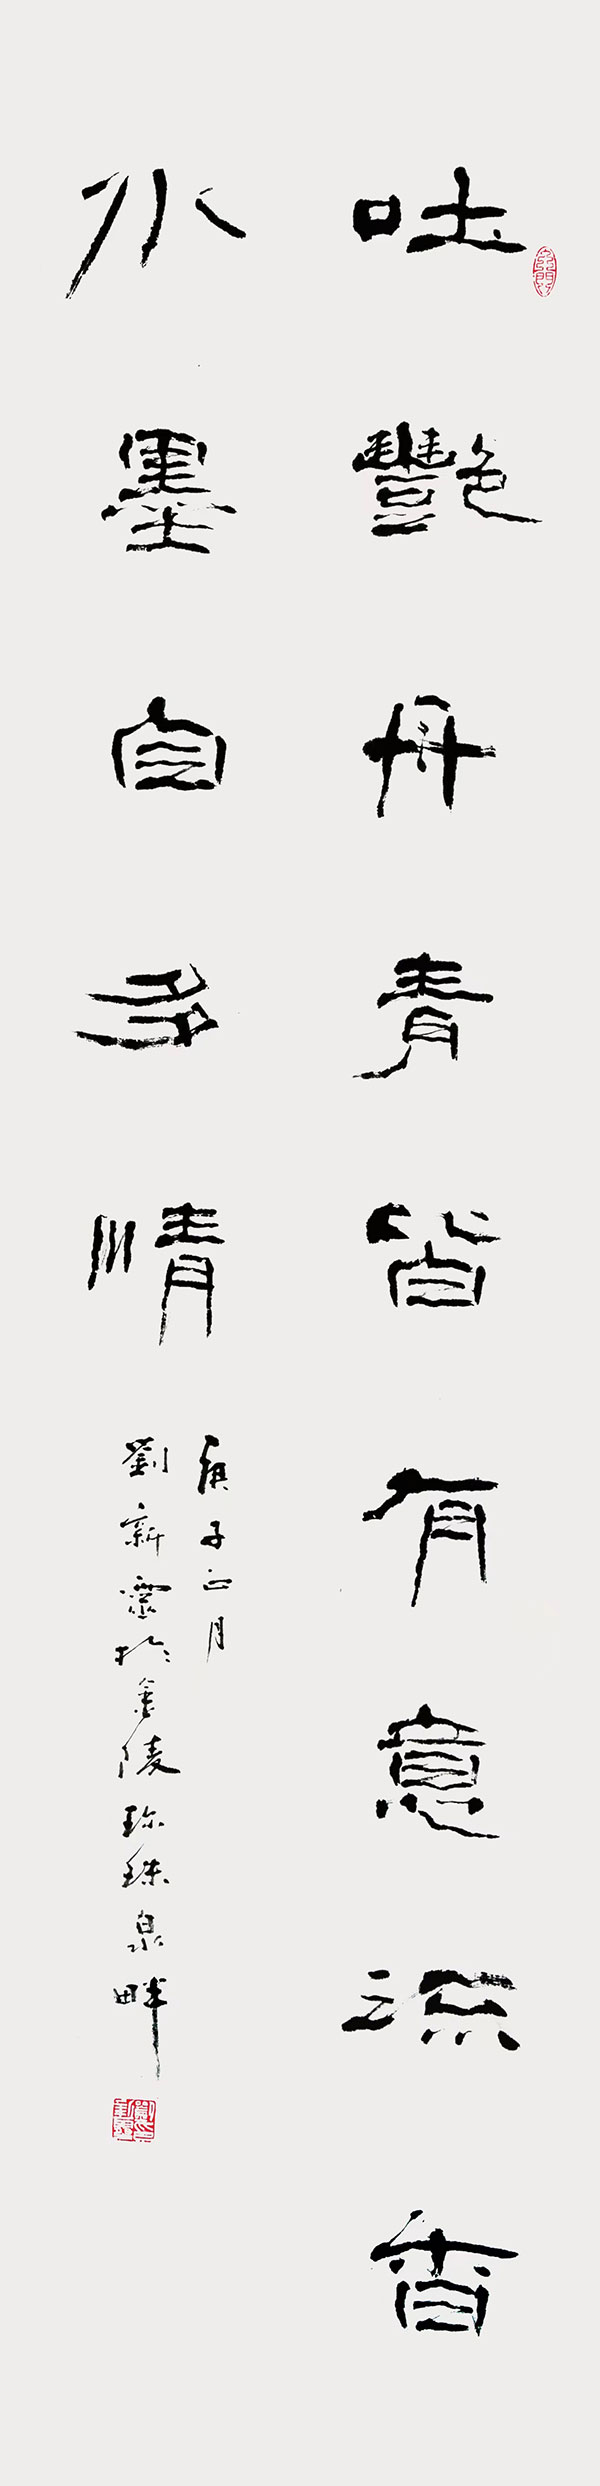 吐艷丹青皆有意流香
水墨自多情
庚子正月
劉新靈於金陵珍珠泉畔